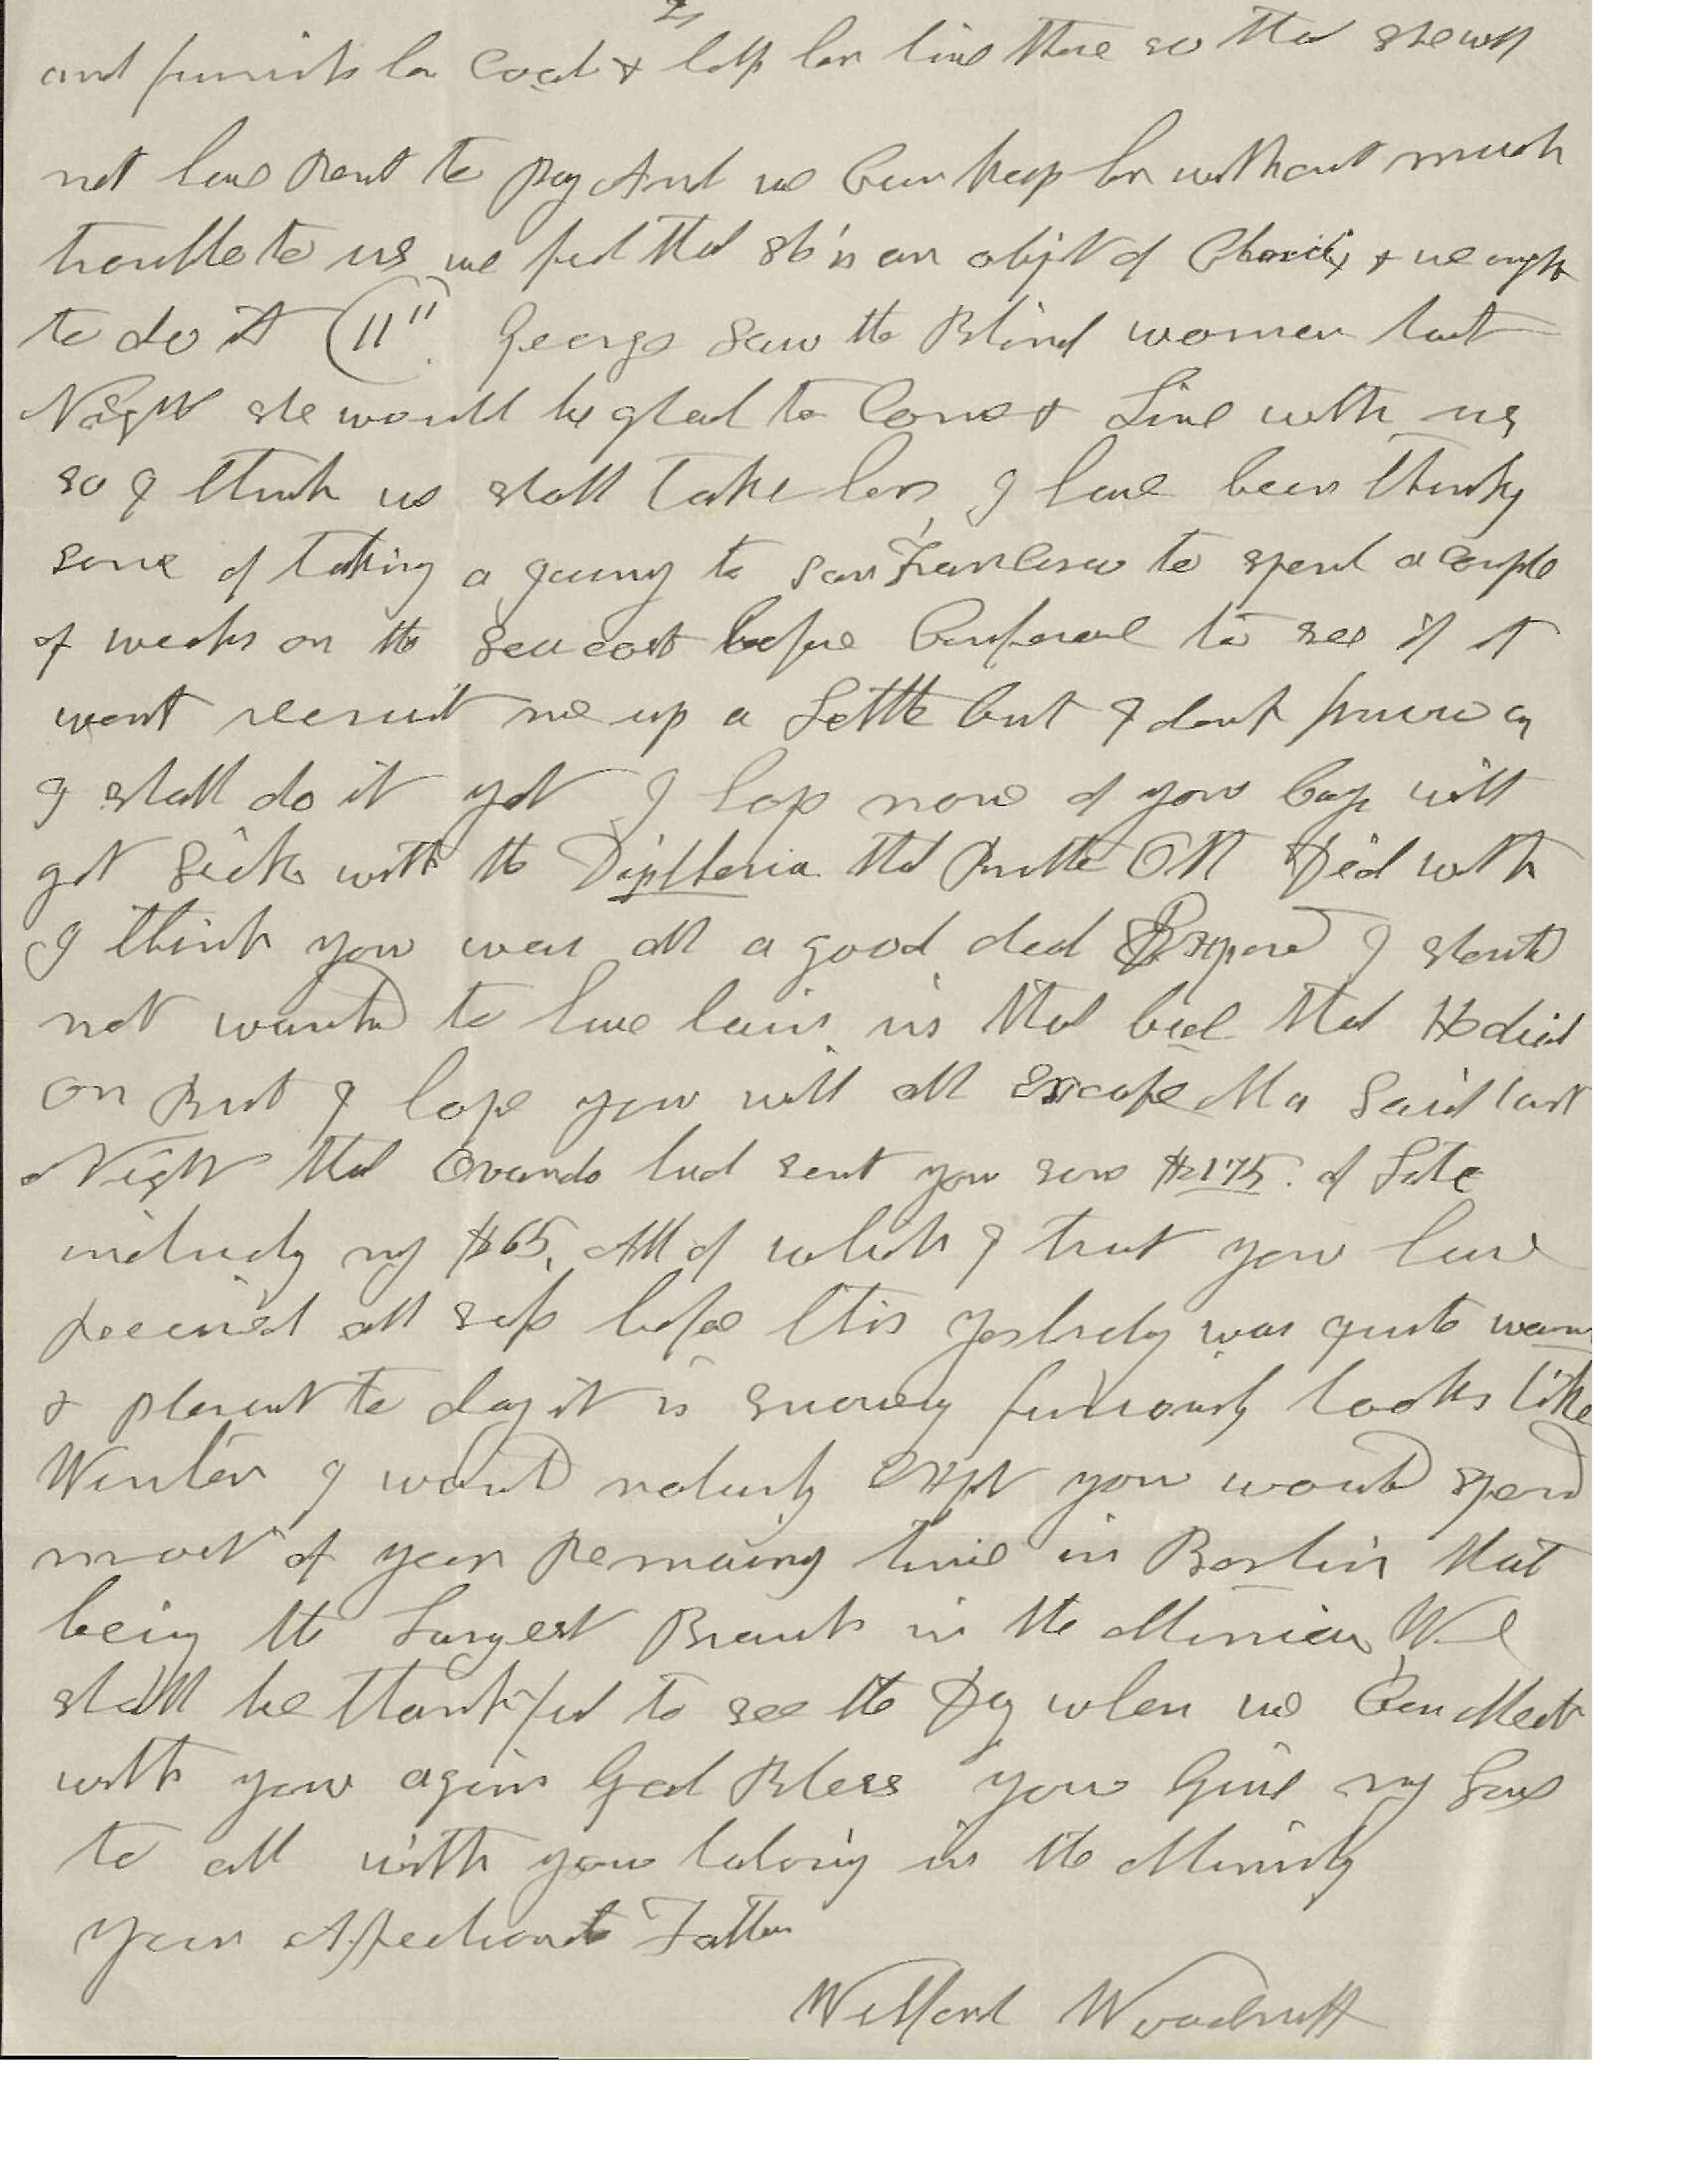 and furnish her Coal & let her live there so that she will
not have Rent to pay And we Can keep her without much
trouble to us we feel that she is an object of Charity & we ought
to do it (11" George saw the Blind women last
Night she would be glad to Come & Live with us
so I think us shall take her, I have been thinking
some of taking a journey to San Francisco to spend a couple
of weeks on the sea coast before Conferenc to see if it
wont recruit me up a Little but I dont know as
I shall do it yet I hope none of your boys will
get Sick with the Diptheria that Brother Ott Died with
I think you was all a good deal Exposed I should
not wanted to have lain in that bed that He died
on But I hope you will all Excape Ma Said last
Night that Ovando had sent you some $175. of Late
includig my $65, All of which I trust you have
Received all safe before this yesterday was quite warm
& plesent to day it is snowing furiously looks like
Winter I would naturly Expt you would spend
most of your Remaing time in Berlin that
being the Largest Branch in the Mission We
shall be thankful to see the Day when we Can Meet
with you again God Bless you Give my Love
to all with you laboring in the Ministry
Your Affectionate Father
Wilford Woodruff